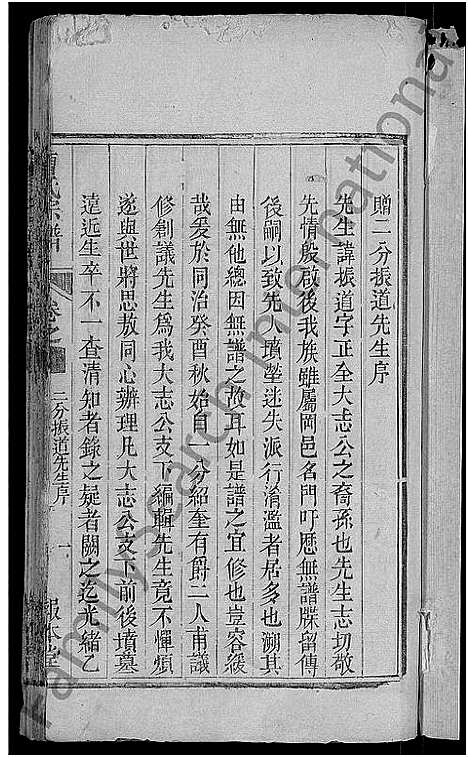 贈二分振道先生序
先生諱振道字正全大志公之裔孫也先生志切敬
先情殷啟後我族雖屬岡邑名門吁歷無譜牒留傳
後嗣以致先人墳塋迷失派行淆濫者居多也溯其
由無他總因無譜之故耳如是譜之宜修也豈容緩
哉爰於同治癸酉秋始自一分紹奎有爵二人甫議
修創議先生爲我大志公支下編輯先生竟不憚煩
遂與世將思敖同心辦理凡大志公支下前後墳墓
遠近生卒不一查清知者錄之疑者闕之迄光緒乙
氏宗譜
卷之
二分振道先生序
一
報本堂
FamilySearch International